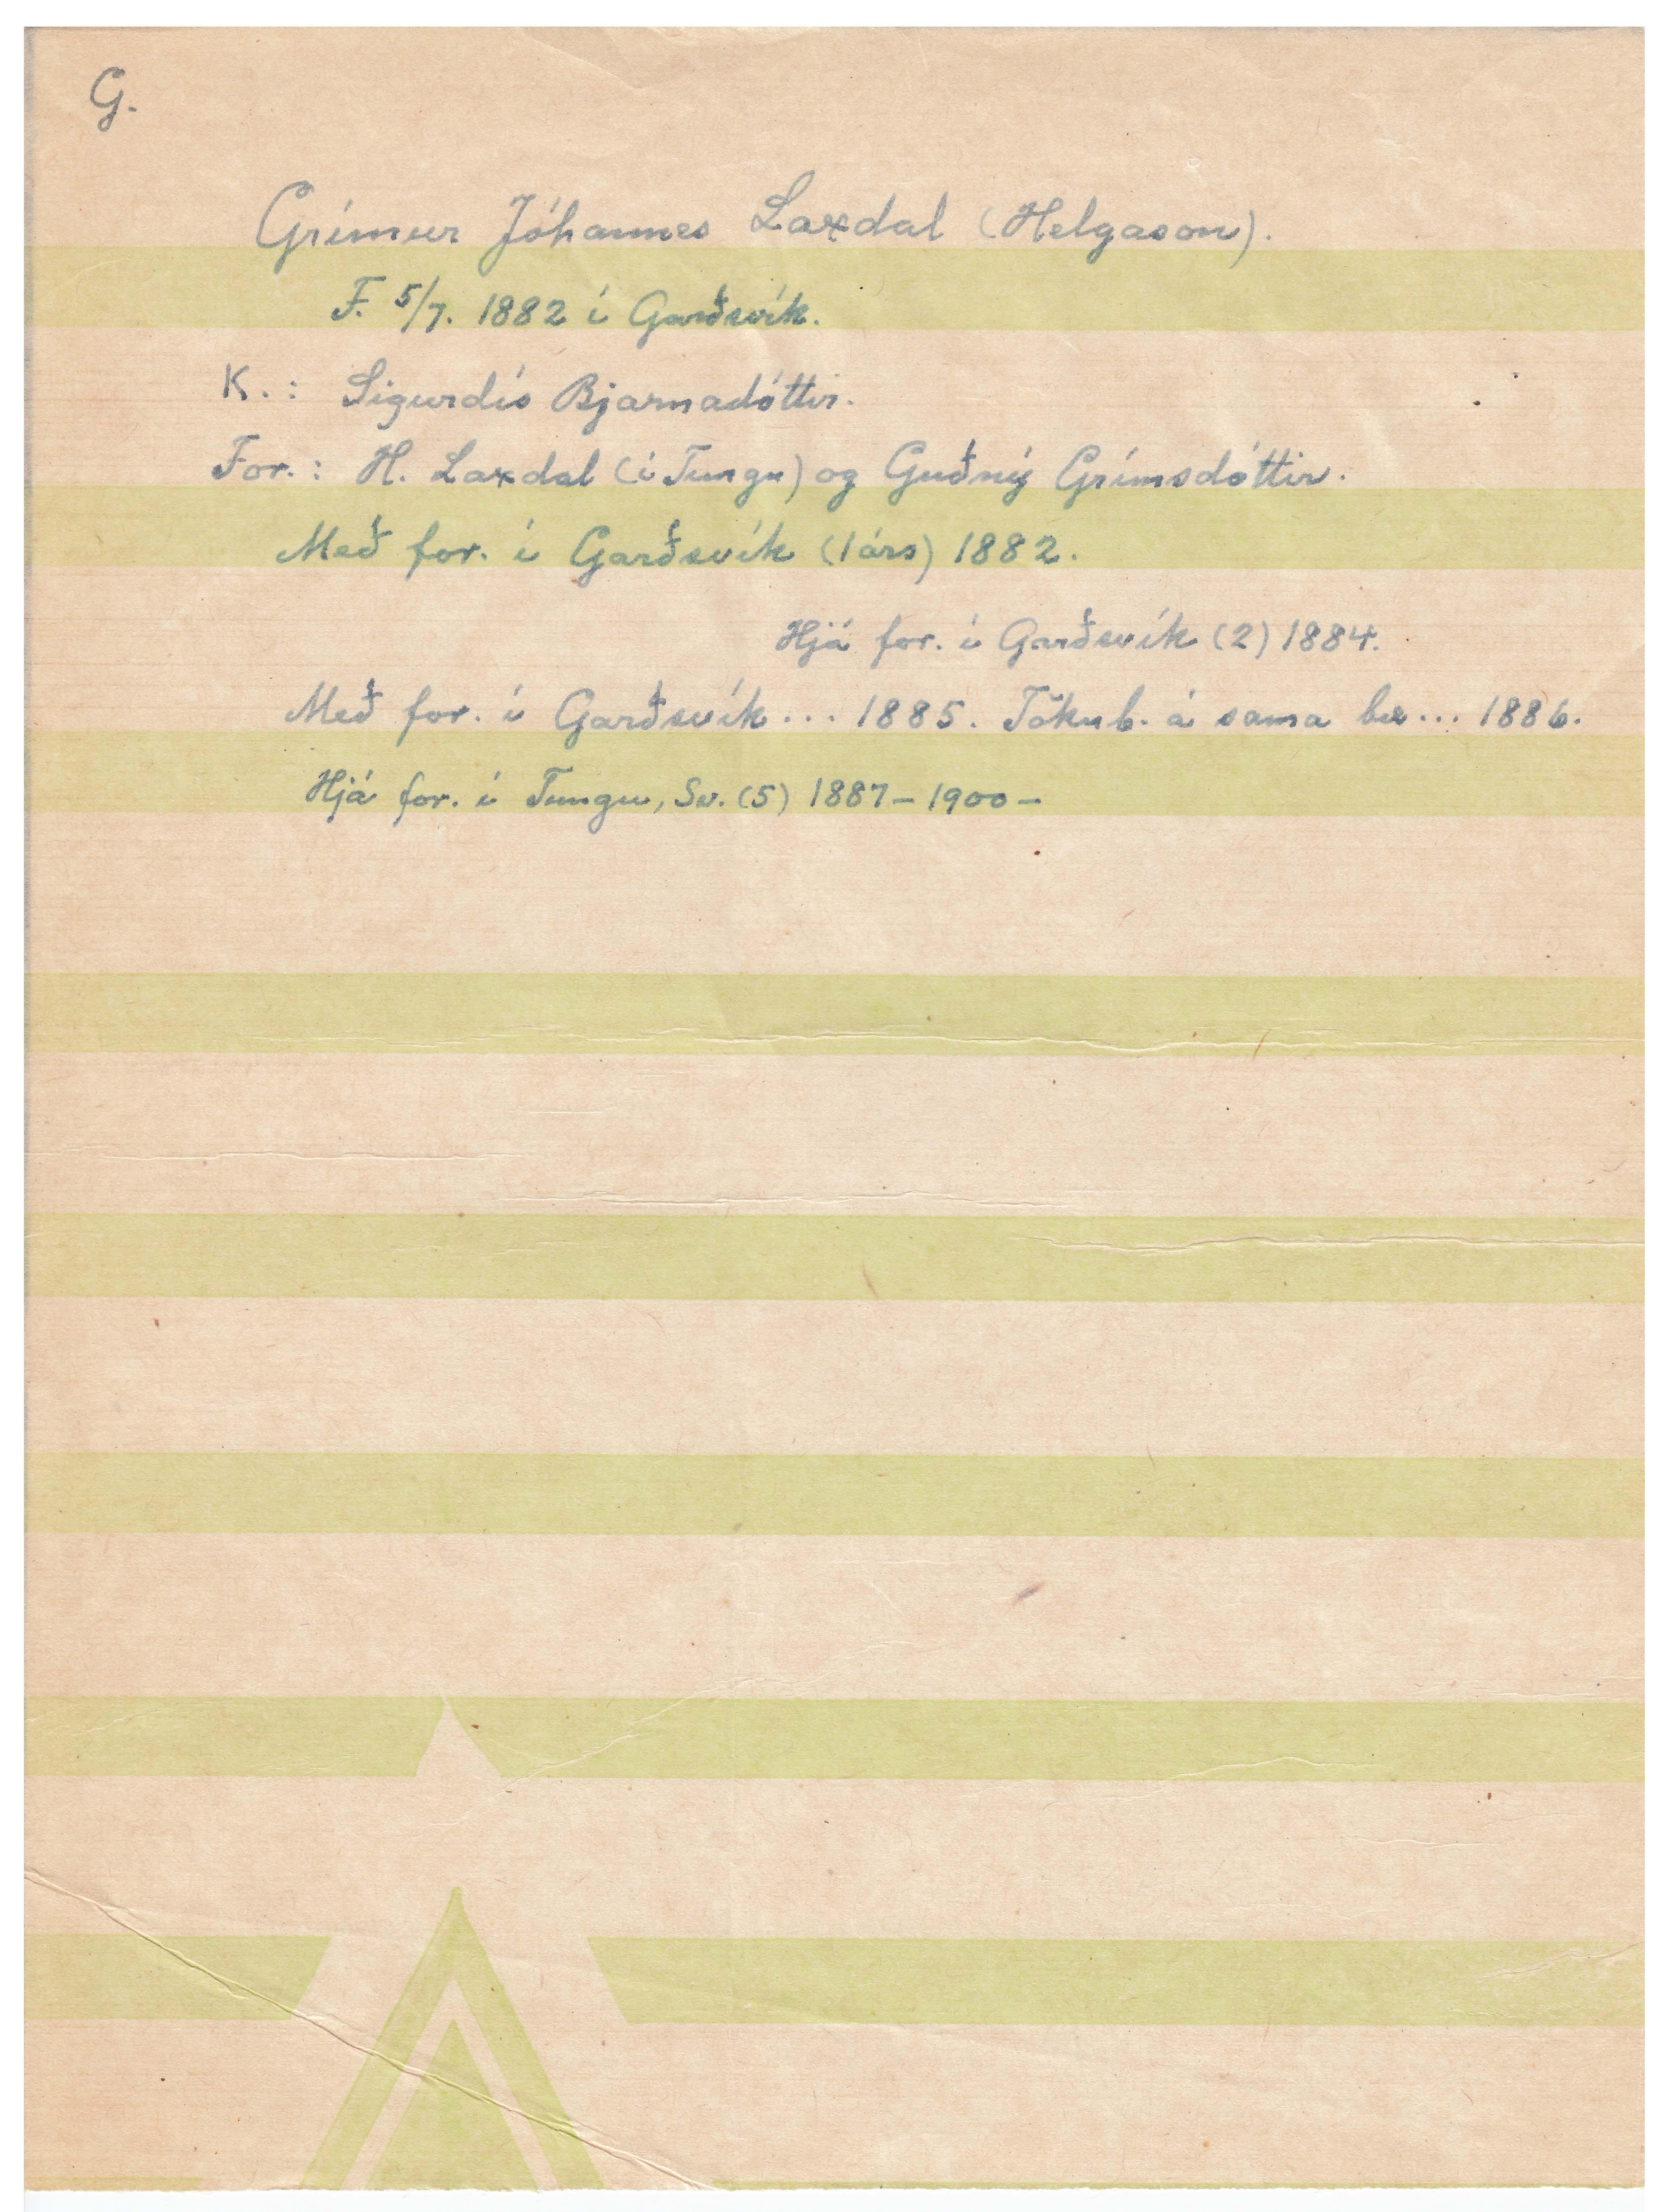 G.
Grímur Jóhannes Laxdal (Helgason).
F. 5/7. 1882 í Garðsvík.
K.: Sigurdís Bjarnadóttir.
For.: H. Laxdal (í Tungu) og Guðný Grímsdóttir.
Með for. í Garðsvík (1 árs) 1882.
Hjá for. í Garðsvík (2) 1884.
Með for. í Garðsvík... 1885. Tökub. á sama bæ... 1886.
Hjá for. í Tungu, Sv. (5) 1887 – 1900 –